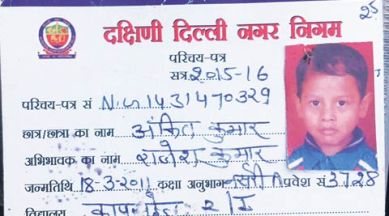 दक्षिणी दिल्ली नगर निगम
25
परिचय-पत्र
सत्र 2015-16
परिचय-पत्र सं N.G1431470329
छात्र/छात्रा का नाम अंकित कुमार
अभिभावक का नाम राजेश कुमार
जन्मतिथि 18-3-2011 कक्षा अनुभाग प्रवेश सं 3728
विद्यालय